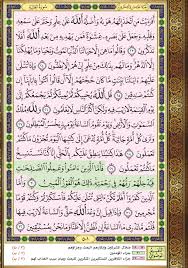 سورة الجاثية
أَفَرَءَيْتَ مَنِ ٱتَّخَذَ إِلَٰهَهُۥ هَوَىٰهُ وَأَضَلَّهُ ٱللَّهُ عَلَىٰ عِلْمٍ وَخَتَمَ عَلَىٰ سَمْعِهِۦ
وَقَلْبِهِۦ وَجَعَلَ عَلَىٰ بَصَرِهِۦ غِشَٰوَةً فَمَن يَهْدِيهِ مِنۢ بَعْدِ ٱللَّهِ أَفَلَا
تَذَكَّرُونَ ٢٣ وَقَالُوا۟ مَا هِىَ إِلَّا حَيَاتُنَا ٱلدُّنْيَا نَمُوتُ وَنَحْيَا وَمَا يُهْلِكُنَآ
إِلَّا ٱلدَّهْرُ وَمَا لَهُم بِذَٰلِكَ مِنْ عِلْمٍ إِنْ هُمْ إِلَّا يَظُنُّونَ ٢٤ وَإِذَا تُتْلَىٰ
عَلَيْهِمْ ءَايَٰتُنَا بَيِّنَٰتٍ مَّا كَانَ حُجَّتَهُمْ إِلَّآ أَن قَالُوا۟ ٱئْتُوا۟ بِـَٔابَآئِنَآ إِن
كُنتُمْ صَٰدِقِينَ ٢٥ قُلِ ٱللَّهُ يُحْيِيكُمْ ثُمَّ يُمِيتُكُمْ ثُمَّ يَجْمَعُكُمْ إِلَىٰ يَوْمِ
ٱلْقِيَٰمَةِ لَا رَيْبَ فِيهِ وَلَٰكِنَّ أَكْثَرَ ٱلنَّاسِ لَا يَعْلَمُونَ ٢٦ وَلِلَّهِ مُلْكُ
ٱلسَّمَٰوَٰتِ وَٱلْأَرْضِ وَيَوْمَ تَقُومُ ٱلسَّاعَةُ يَوْمَئِذٍ يَخْسَرُ ٱلْمُبْطِلُونَ ٢٧
وَتَرَىٰ كُلَّ أُمَّةٍ جَاثِيَةً كُلُّ أُمَّةٍ تُدْعَىٰٓ إِلَىٰ كِتَٰبِهَا ٱلْيَوْمَ تُجْزَوْنَ مَا كُنتُمْ
تَعْمَلُونَ ٢٨ هَٰذَا كِتَٰبُنَا يَنطِقُ عَلَيْكُم بِٱلْحَقِّ إِنَّا كُنَّا نَسْتَنسِخُ
مَا كُنتُمْ تَعْمَلُونَ ٢٩ فَأَمَّا ٱلَّذِينَ ءَامَنُوا۟ وَعَمِلُوا۟ ٱلصَّٰلِحَٰتِ
فَيُدْخِلُهُمْ رَبُّهُمْ فِى رَحْمَتِهِۦ ذَٰلِكَ هُوَ ٱلْفَوْزُ ٱلْمُبِينُ ٣٠ وَأَمَّا
ٱلَّذِينَ كَفَرُوٓا۟ أَفَلَمْ تَكُنْ ءَايَٰتِى تُتْلَىٰ عَلَيْكُمْ فَٱسْتَكْبَرْتُمْ وَكُنتُمْ قَوْمًا
مُّجْرِمِينَ ٣١ وَإِذَا قِيلَ إِنَّ وَعْدَ ٱللَّهِ حَقٌّ وَٱلسَّاعَةُ لَا رَيْبَ فِيهَا قُلْتُم
مَّا نَدْرِى مَا ٱلسَّاعَةُ إِن نَّظُنُّ إِلَّا ظَنًّا وَمَا نَحْنُ بِمُسْتَيْقِنِينَ ٣٢
٥٠١